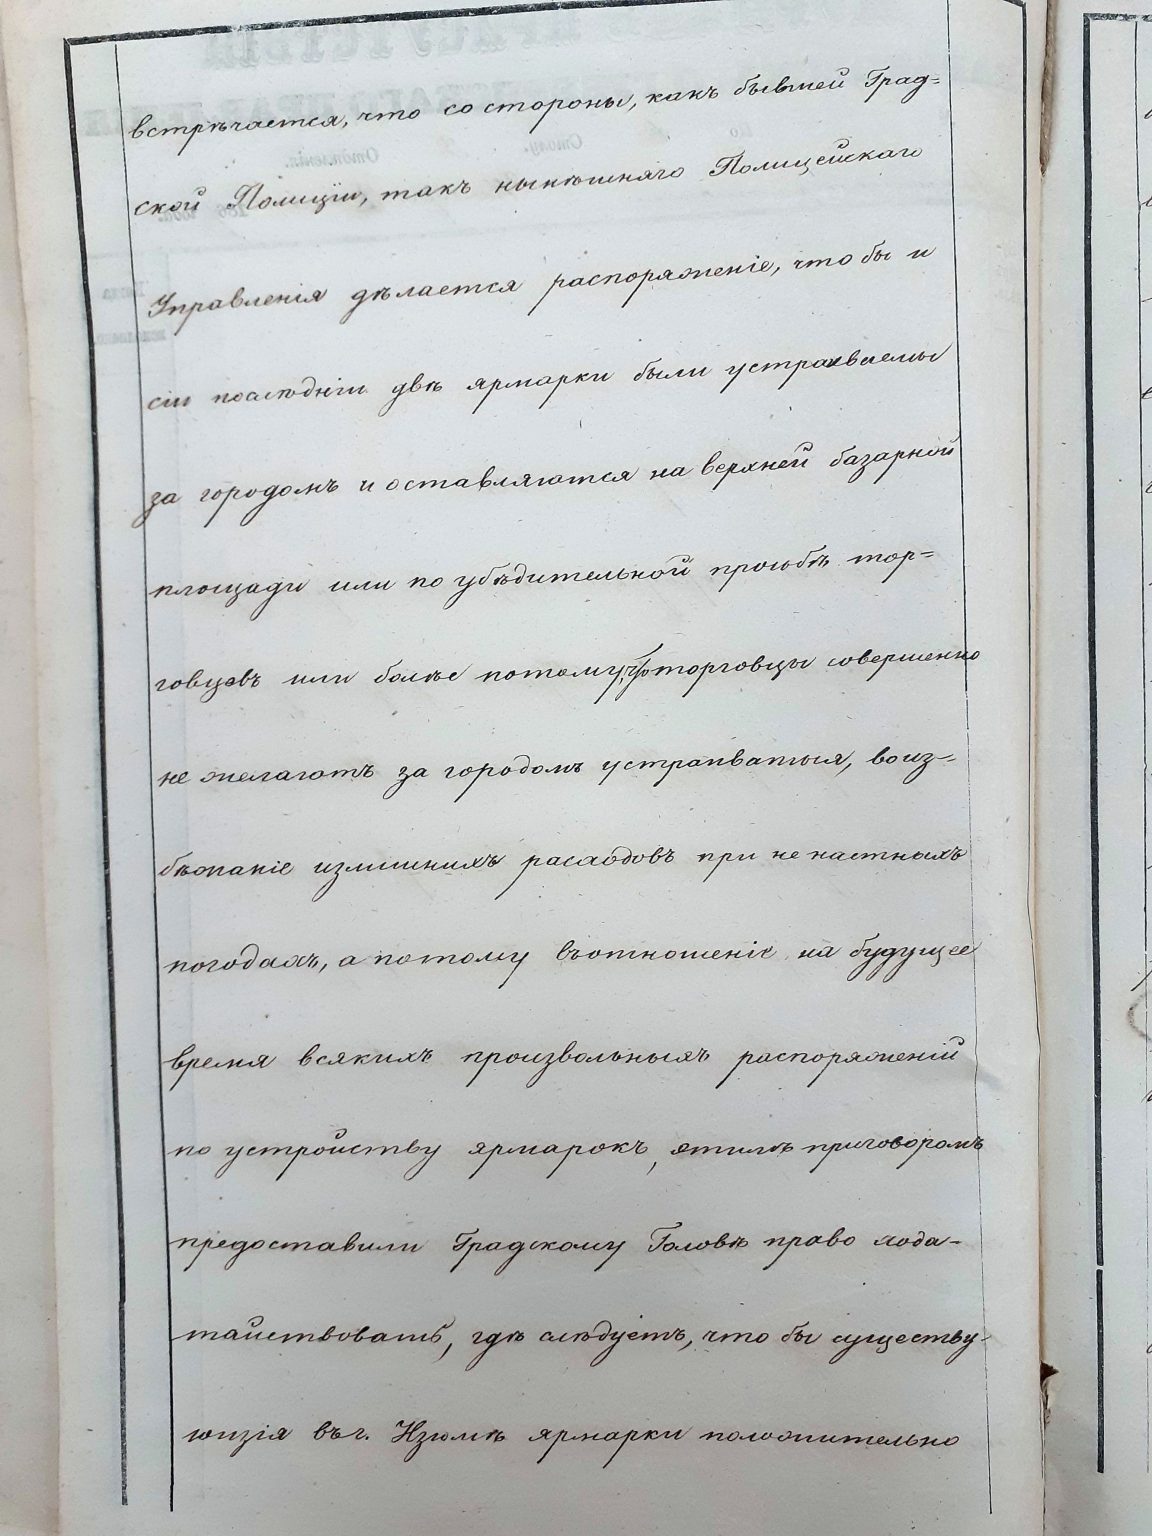 встрѣчается, что со стороны, какъ бывшей Град=
ской Полиціи, такъ нынѣшняго Полицейскаго
Управленія дѣлается распоряженіе, что бы и
сіи послѣднiи двѣ ярмарки были устраиваемы
за городомъ и оставляются на верхней базарной
площади или по убѣдительной прозьбѣ тор=
говцевъ или болѣе потому, что торговцы совершенно
не желаютъ за городомъ устраиваться, во из=
бѣжаніе излишнихъ расходовъ при не настныхъ
погодахъ, а потому въ отношеніе на будущее
время всякихъ произвольныхъ распоряженій
по устройству ярмарокъ, этимъ приговоромъ
предоставили Градскому Головѣ право хода-
тайствовать, гдѣ слѣдуетъ, что бы существу-
ющія въ г. Изюмѣ ярмарки положительно